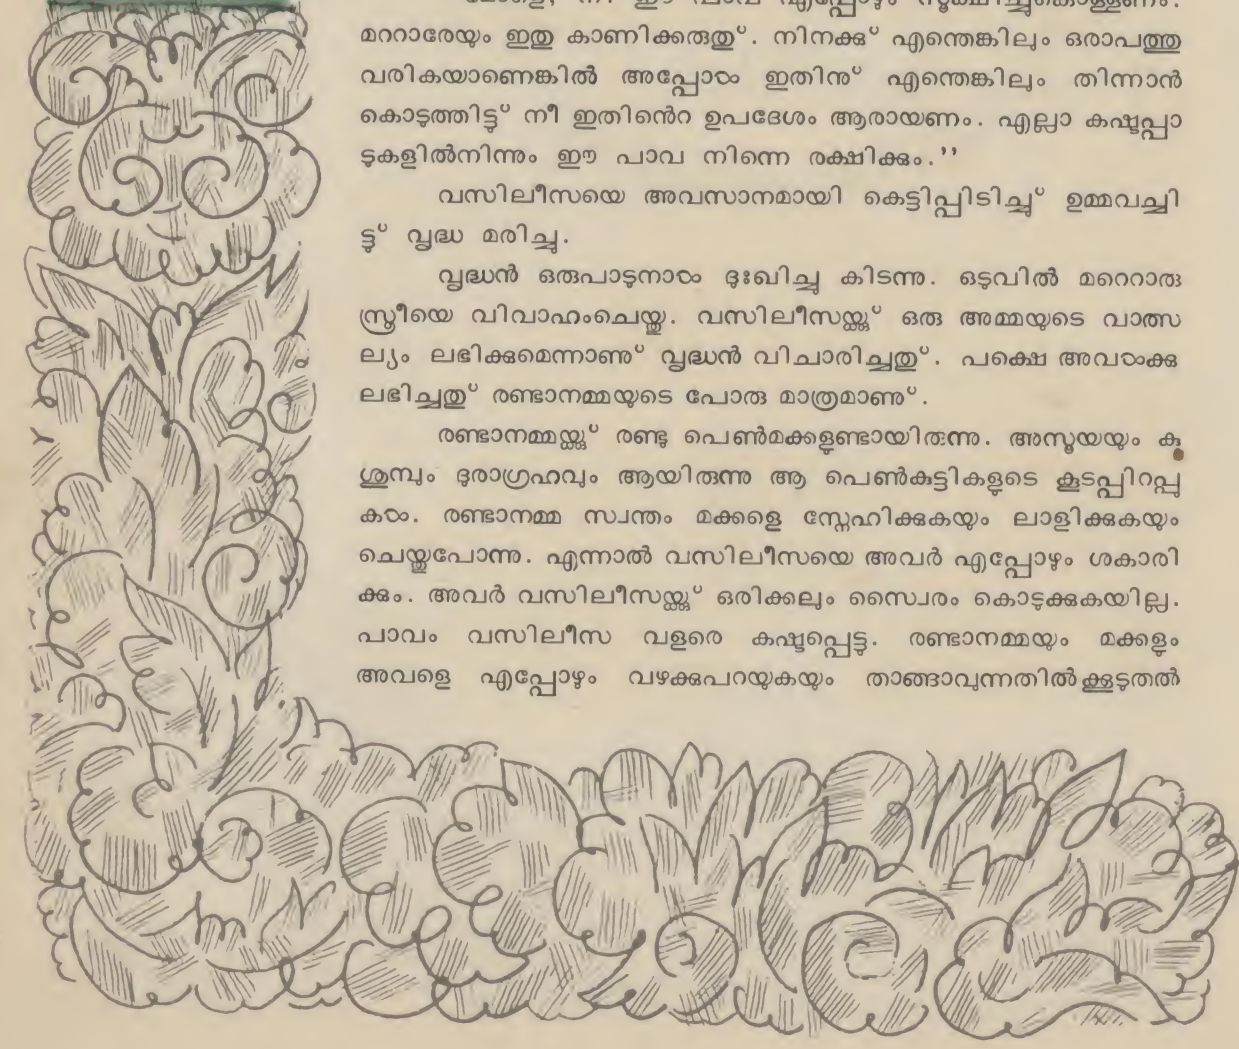 മോളെ, നീ ഈ പാവ എപ്പോഴും സൂക്ഷിച്ചുകൊള്ളണം.
മററാരേയും ഇതു കാണിക്കരുതു്. നിനക്കു് എന്തെങ്കിലും ഒരാപത്തു
വരികയാണെങ്കിൽ അപ്പോൾ ഇതിനു് എന്തെങ്കിലും തിന്നാൻ
കൊടുത്തിട്ടു് നീ ഇതിൻെറ ഉപദേശം ആരായണം. എല്ലാ കഷ്ടപ്പാ
ടുകളിൽനിന്നും ഈ പാവ നിന്നെ രക്ഷിക്കും.’’
വസിലീസയെ അവസാനമായി കെട്ടിപ്പിടിച്ചു് ഉമ്മവച്ചി
ട്ടു് വൃദ്ധ മരിച്ചു.
വൃദ്ധൻ ഒരുപാടുനാൾ ദുഃഖിച്ചു കിടന്നു. ഒടുവിൽ മറെറാരു
സ്ത്രീയെ വിവാഹംചെയ്തു. വസിലീസയ്ക്കു് ഒരു അമ്മയുടെ വാത്സ
ല്യം ലഭിക്കുമെന്നാണു് വൃദ്ധൻ വിചാരിച്ചതു്. പക്ഷെ അവൾക്കു
ലഭിച്ചതു് രണ്ടാനമ്മയുടെ പോരു മാത്രമാണു്.
രണ്ടാനമ്മയ്ക്കു് രണ്ടു പെൺമക്കളുണ്ടായിരുന്നു. അസൂയയും കു
ശുമ്പും ദുരാഗ്രഹവും ആയിരുന്നു ആ പെൺകുട്ടികളുടെ കൂടപ്പിറപ്പു
കൾ. രണ്ടാനമ്മ സ്വന്തം മക്കളെ സ്നേഹിക്കുകയും ലാളിക്കുകയും
ചെയ്തുപോന്നു. എന്നാൽ വസിലീസയെ അവർ എപ്പോഴും ശകാരി
ക്കും. അവർ വസിലീസയ്ക്കു് ഒരിക്കലും സ്വൈരം കൊടുക്കുകയില്ല.
പാവം വസിലീസ വളരെ കഷ്ടപ്പെട്ടു. രണ്ടാനമ്മയും മക്കളും
അവളെ എപ്പോഴും വഴക്കുപറയുകയും താങ്ങാവുന്നതിൽക്കൂടുതൽ